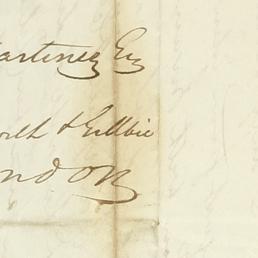 artinez Esq
orth & Gillbie
ndon